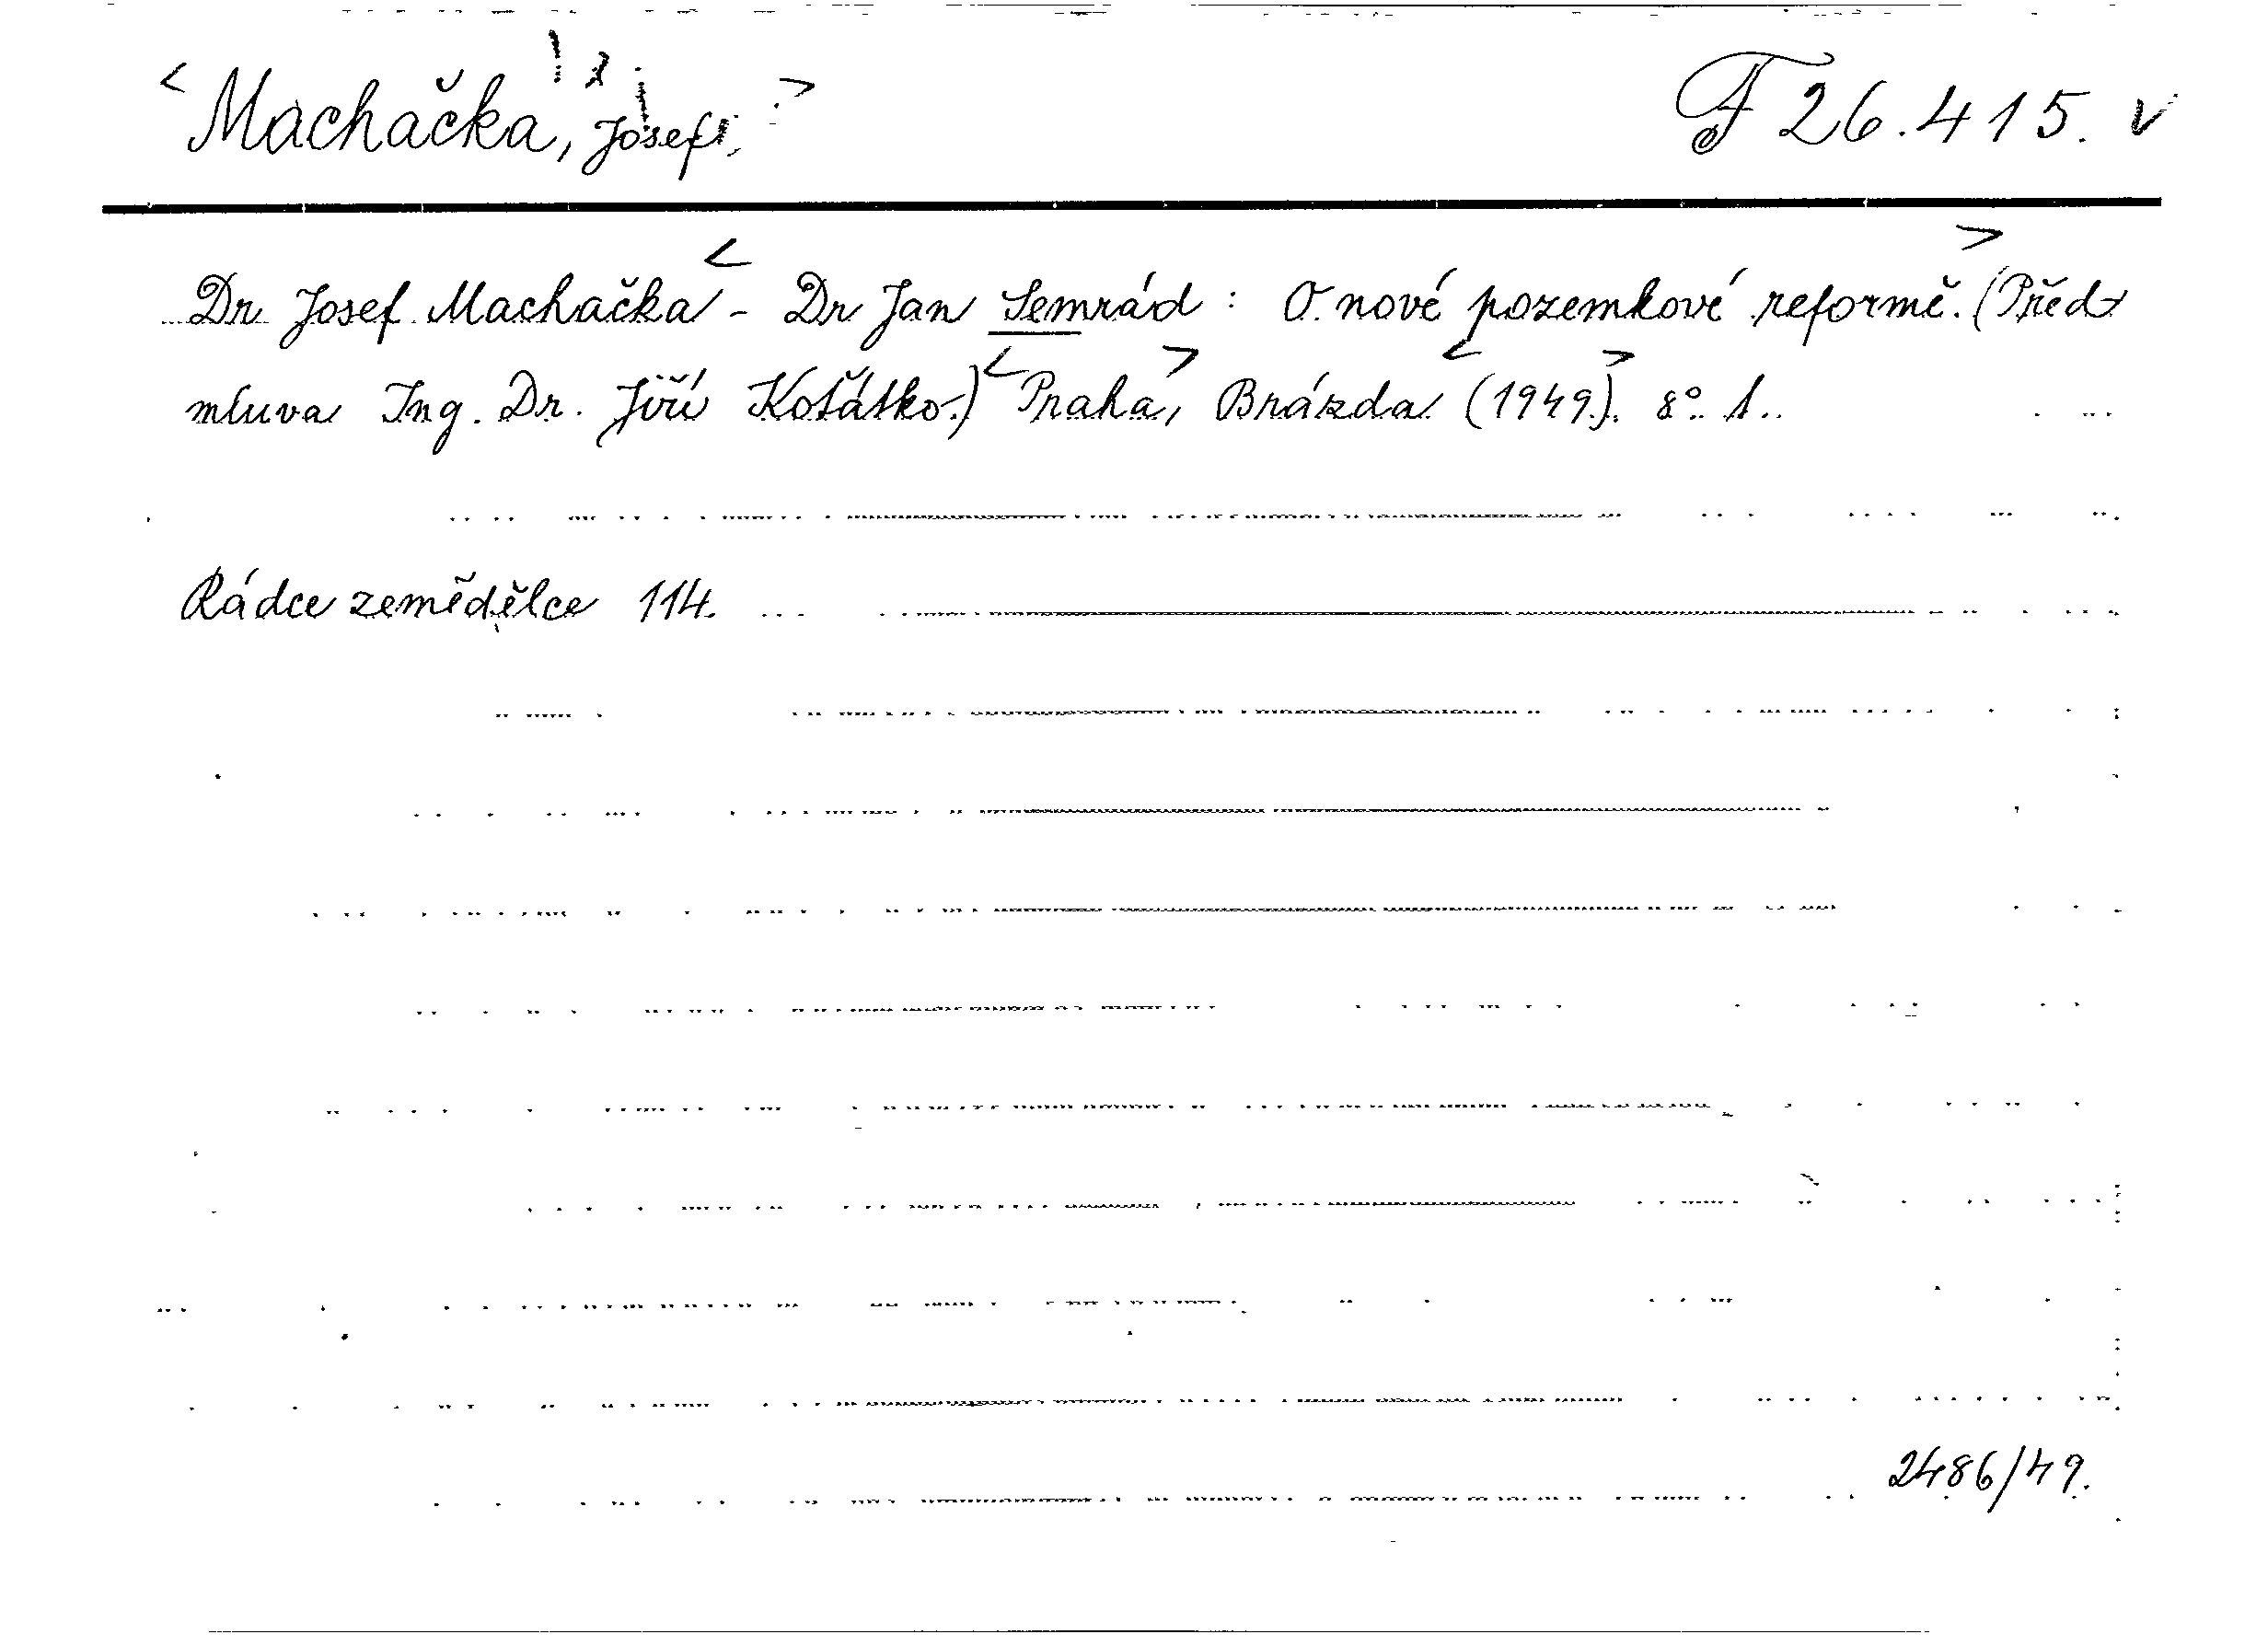 <Machačka, Josef.> F 26.415. v
Dr. Josef Machačka< - Dr Jan Semrád: O nové pozemkové reformě.> (Před
mluva Ing. Dr. Jiří Koťátko.) <Praha>, Brázda <(1949)>. 8°. 1.
Rádce zemědělce 114.
2486/49.